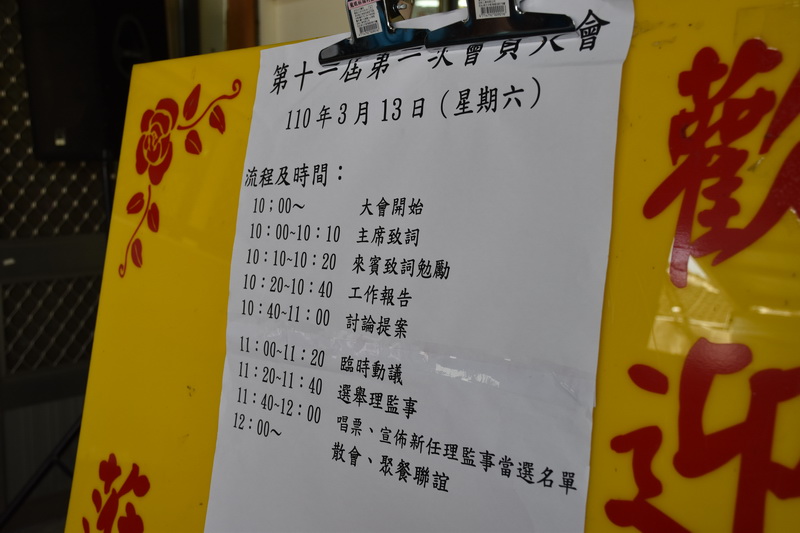 第十二屆第二次會員大會
110年3月13日(星期六)
流程及時間：
10；00～ 大會開始
10：00~10：10 主席致詞
10：10~10：20 來賓致詞勉勵
10：20~10：40 工作報告
10：40~11：00 討論提案
11：00~11：20 臨時動議
11：20~11：40 選舉理監事
11：40~12：00 唱票、宣佈新任理監事當選名單
12：00～ 散會、聚餐聯誼
歡
迎
蒞